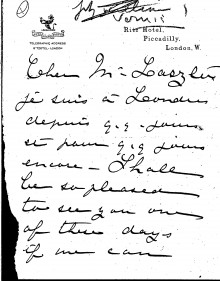 Ritz Hotel,
Piccadilly.
London, W.
TELEGRAPHIC ADDRESS
Cher Mr Laszlo
je suis à Londres
depuis q.q. jours
et pour q.q. jours
encore - I shall
be so pleased
to see you one
of these days
if we can